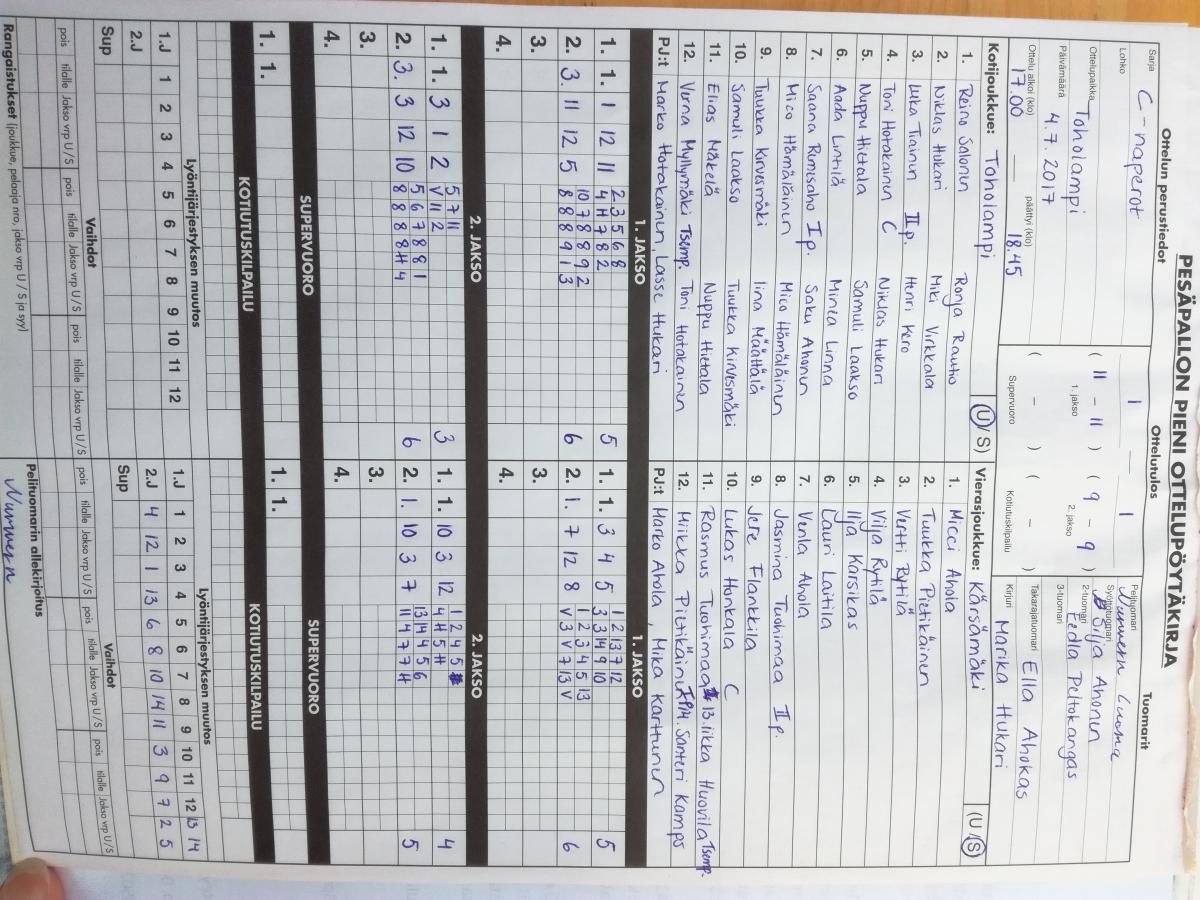 PESÄPALLON PIENI OTTELUPÖYTÄKIRJA
Ottelun perustiedot
Ottelutulos
Tuomarit
Sarja C-naperot
Lohko
Ottelupaikka Toholampi
Päivämäärä 4.7.2017
Ottelu alkoi (klo) 17.00 päättyi (klo) 18.45
1 — 1
( 11 - 11 ) ( 9 - 9 )
1. jakso 2. jakso
( - ) ( - )
Supervuoro Kotiutuskilpailu
Pelituomari
Syöttötuomari Silja Ahonen
2-tuomari Eedla Peltokangas
3-tuomari
Takarajatuomari Ella Ahokas
Kirjuri Marika Hukari
Kotijoukkue: Toholampi (U/S)
1. Reino Salonen Ronja Rautio
2. Niklas Hukari Miki Virkkala
3. Luka Tiainen II p. Henri Kero
4. Toni Hotakainen C Niklas Hukari
5. Nuppu Hietala Samuli Laakso
6. Aada Lintilä Minea Linna
7. Saana Rumisaho I p. Saku Ahonen
8. Mico Hämäläinen Mico Hämäläinen
9. Tuukka Kirvesmäki Iina Määttälä
10. Samuli Laakso Tuukka Kirvesmäki
11. Elias Mäkelä Nuppu Hietala
12. Verna Myllymäki Tsemp. Toni Hotakainen
PJ:t Marko Hotakainen, Lasse Hukari
Vierasjoukkue: Kärsämäki (U/S)
1. Micci Ahola
2. Tuukka Pietikäinen
3. Vertti Rytilä
4. Vilja Rytilä
5. Ilja Karsikas
6. Lauri Laitila
7. Venla Ahola
8. Jasmina Tuohimaa II p.
9. Jere Flankkila
10. Lukas Honkala C
11. Rasmus Tuohimaa 13. Iikka Huovila Tsemp.
12. Miikka Pietikäinen I p. 14. Santeri Kamps
PJ:t Marko Ahola, Mika Karttunen
1. JAKSO
1. 1. 1 12 11 2 3 5 6 8 5
4 H 7 8 2
2. 3. 11 12 5 10 7 8 8 9 2 6
8 8 8 9 1 3
3.
4.
1. JAKSO
1. 1. 3 4 5 1 2 13 7 12 5
3 3 14 9 10
2. 1. 7 12 8 1 2 3 4 5 13 6
V 3 V 7 13 V
3.
4.
2. JAKSO
1. 1. 3 1 2 5 7 11 3
V 11 2
2. 3. 3 12 10 5 6 7 8 8 1 6
8 8 8 8 H 4
3.
4.
2. JAKSO
1. 1. 10 3 12 1 2 4 5 4
4 H 5 H
2. 1. 10 3 7 13 14 4 5 6 5
11 4 7 7 H
3.
4.
SUPERVUORO
1. 1.
SUPERVUORO
1. 1.
KOTIUTUSKILPAILU
KOTIUTUSKILPAILU
Lyöntijärjestyksen muutos
1.J 1 2 3 4 5 6 7 8 9 10 11 12
2.J
Sup
Lyöntijärjestyksen muutos
1.J 1 2 3 4 5 6 7 8 9 10 11 12 13 14
2.J 4 12 1 13 6 8 10 14 11 3 9 7 2 5
Sup
Vaihdot
pois tilalle Jakso vrp U/S pois tilalle Jakso vrp U/S pois tilalle Jakso vrp U/S
Vaihdot
pois tilalle Jakso vrp U/S pois tilalle Jakso vrp U/S pois tilalle Jakso vrp U/S
Rangaistukset (joukkue, pelaaja nro, jakso vrp U / S ja syy)
Pelituomarin allekirjoitus